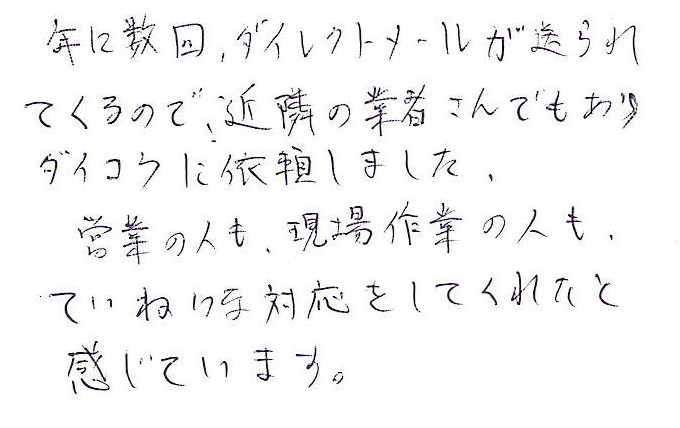 年に数回、ダイレクトメールが送られ
てくるので、近隣の業者さんでもあり
ダイコウに依頼しました、
営業の人も、現場作業の人も、
ていねいな対応をしてくれたと
感じています。